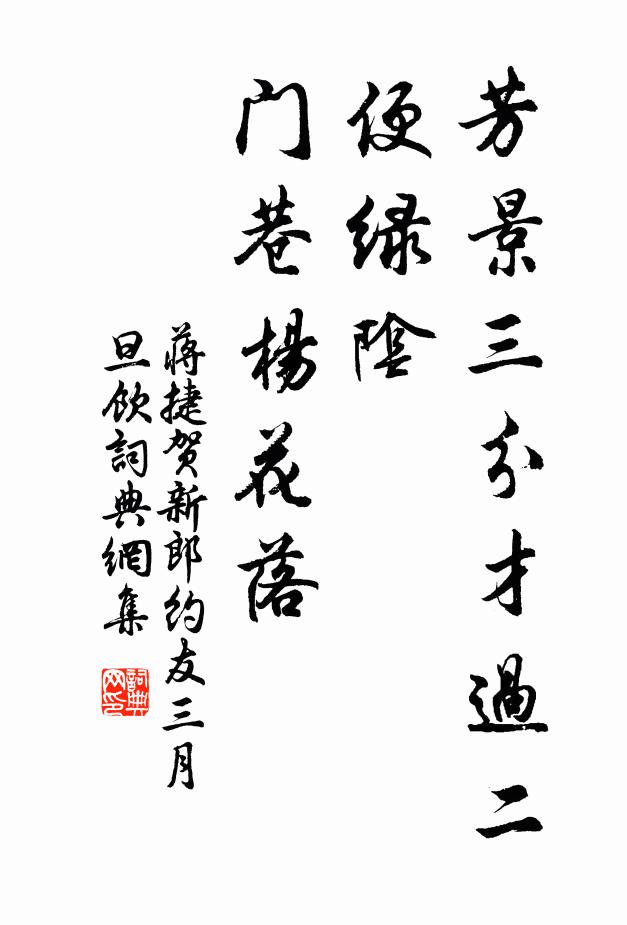 芳景三分才過二
便緑陰
门巷楊花落
蔣捷贺新郎约友三月
旦飲詞典網集
詞典网印